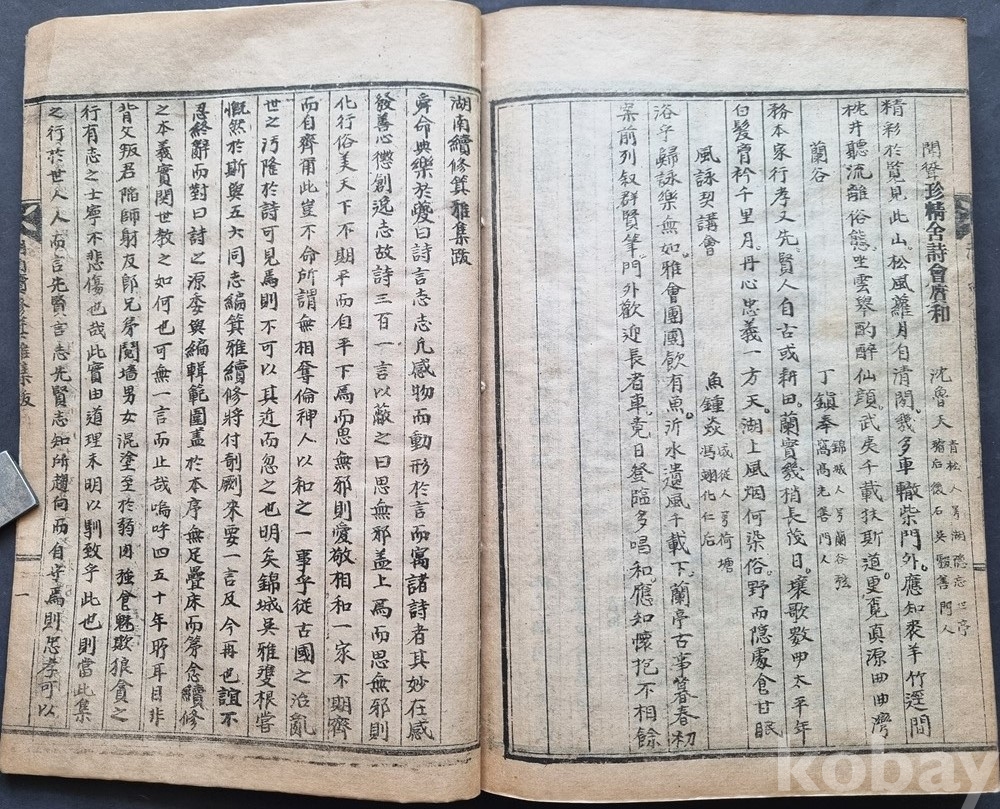 珍精舍詩會賡和 沈魯天 青松人号湖隱
精彩於賢見此山。松風蘿月自清閒。幾多車轍柴門外。應知裘羊竹逕間
枕井聽流離俗態。坐雲擧酌醉仙顔。武夷千載扶斯道。更覔眞源曲曲灣
蘭谷 丁鎭奉 錦城人号蘭谷弦
窩高光善門人
務本家行孝又先。賢人自古或耕田。蘭實幾梢長後日。壤歌數曲太平年
白髮宵衿千里月。丹心忠義一方天。湖上風烟何染俗。野而隱處食甘眠
風詠契講會 魚鍾焱 咸從人号荷塘
馮翊化仁后
浴乎歸詠樂無如。雅會團團飮有魚。沂水遺風千載下。蘭亭古事暮春初
案前列叙群賢筆。門外歡迎長者車。竟日登臨多唱和。應知懷抱不相餘
湖南續修箕雅集跋
舜命典樂於夔曰詩言志志凡感物而動形於言而寓諸詩者其妙在感
發善心懲創逸志故詩三百一言以蔽之曰思無邪盖上焉而思無邪則
化行俗美天下不期平而自平下焉而思無邪則愛敬相和一家不期齊
而自齊爾此豈不命所謂無相奪倫神人以和之一事乎從古國之治亂
世之汚隆於詩可見焉則不可以其近而忽之也明矣錦城吳雅雙根嘗
慨然於斯與五六同志編箕雅續修將付剞劂來要一言及今再也誼不
忍終辭而對曰詩之源委與編輯範圍盖於本序無足疊床而第念續修
之本義實閔世教之如何也可無一言而止哉嗚呼四五十年所耳目非
背父叛君陷師射友卽兄弟鬩墻男女混塗至於弱肉强食魅欺狼貪之
行有志之士寧不悲傷也哉此實由道理未明以馴致乎此也則當此集
之行於世人人而言先賢言志先賢志知所趨向而自守焉則忠孝可以
湖南續修箕雅集跋
一
kobay